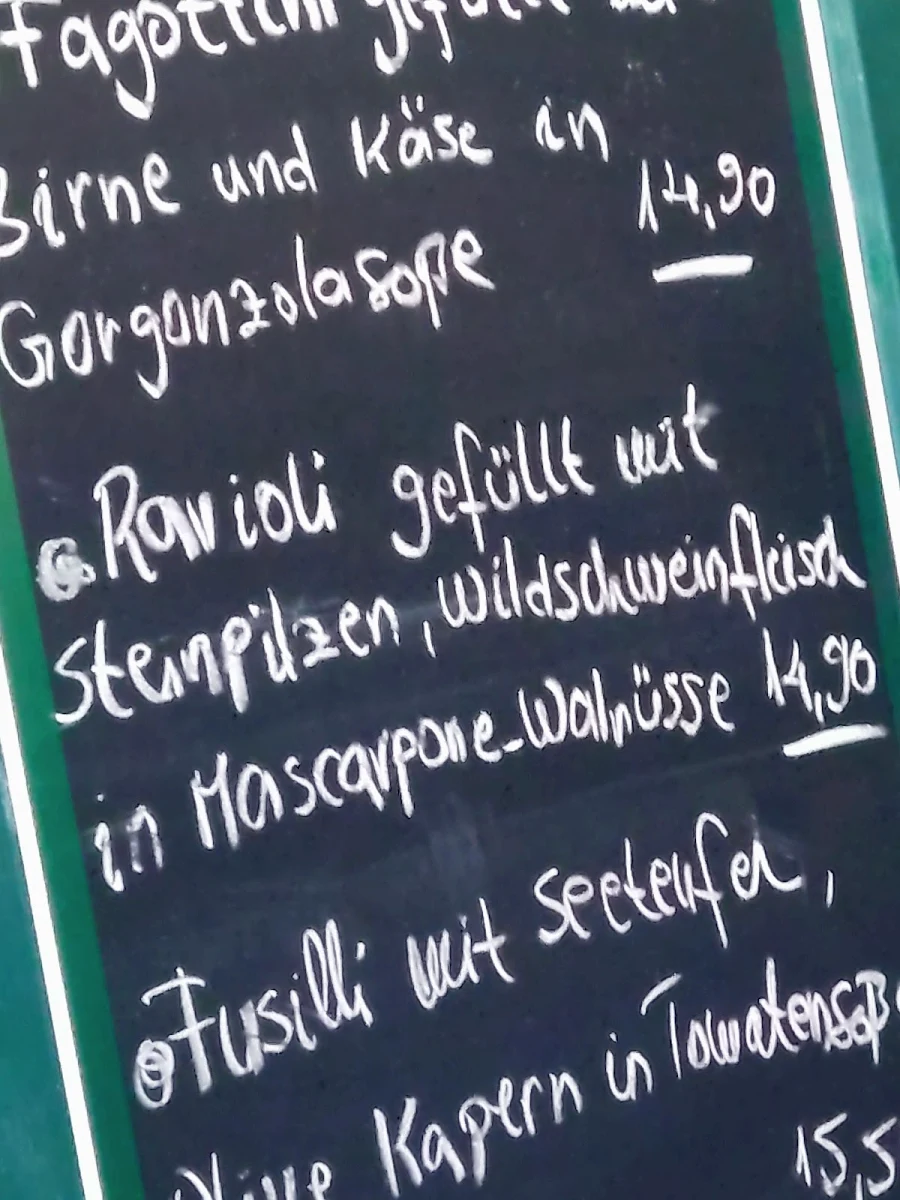 Fagottini gefüllt mit
Birne und Käse in
Gorgonzolasoße 14,90
Ravioli gefüllt mit
Steinpilzen, Wildschweinfleisch
in Mascarpone-Walnüsse 14,90
Fusilli mit Seeteufel,
Olive Kapern in Tomatensoße
15,5